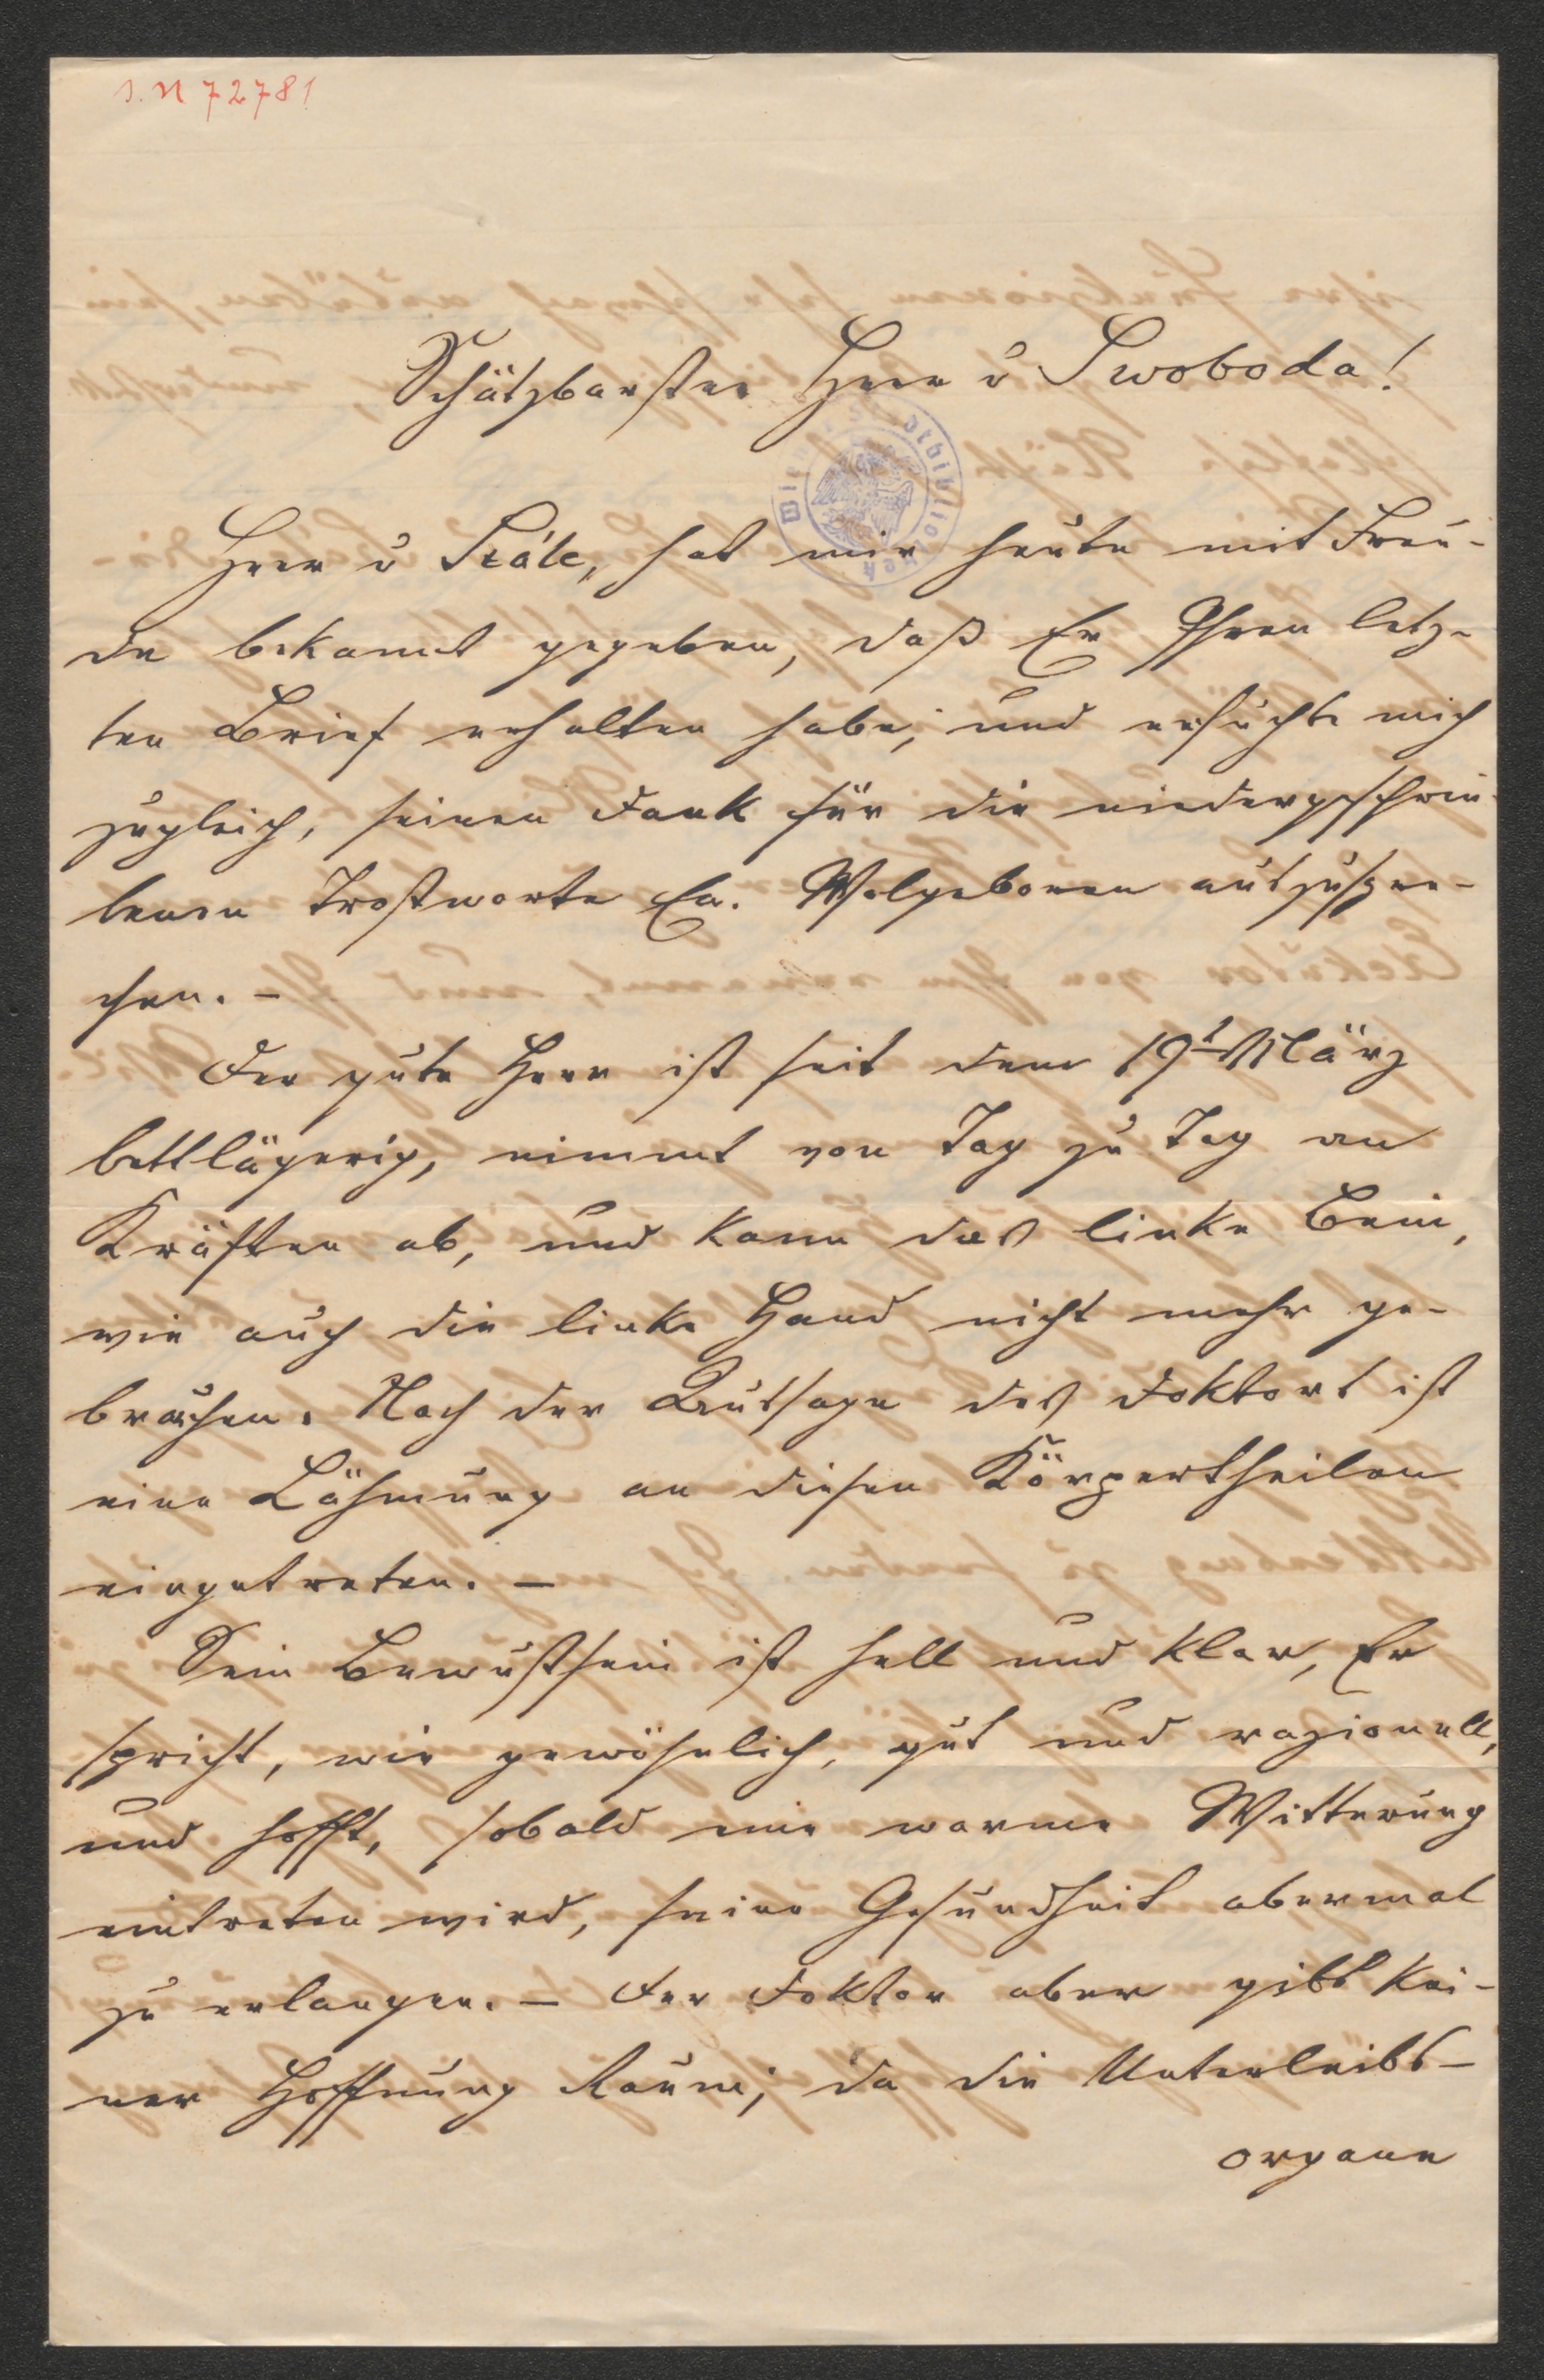 I. N 72781
Schätzbarster Herr v Swoboda!
Wiener Stadtbibliothek
Herr v Szále, hat mir heute mit Freu-
de bekannt gegeben, daß Er Ihren letz-
ten Brief erhalten habe, und ersuchte mich
zugleich, seinen Dank für die niedergeschrie-
benen Trostworte Eu. Wolgeboren auszuspre-
chen. -
Der gute Herr ist seit dem 19t März
bettlägerig, nimmt von Tag zu Tag an
Kräften ab, und kann das linke Bein,
wie auch die linke Hand nicht mehr ge-
brauchen. Nach der Aussage des Doktors ist
eine Lähmung an diesen Körpertheilen
eingetreten. -
Sein Bewußtsein ist hell und klar, Er
spricht, wie gewöhnlich, gut und razionell,
und hofft, sobald eine warme Witterung
eintreten wird, seine Gesundheit abermal
zu erlangen. - Der Doktor aber gibt kei-
ner Hoffnung Raum; da die Unterleibs-
organe